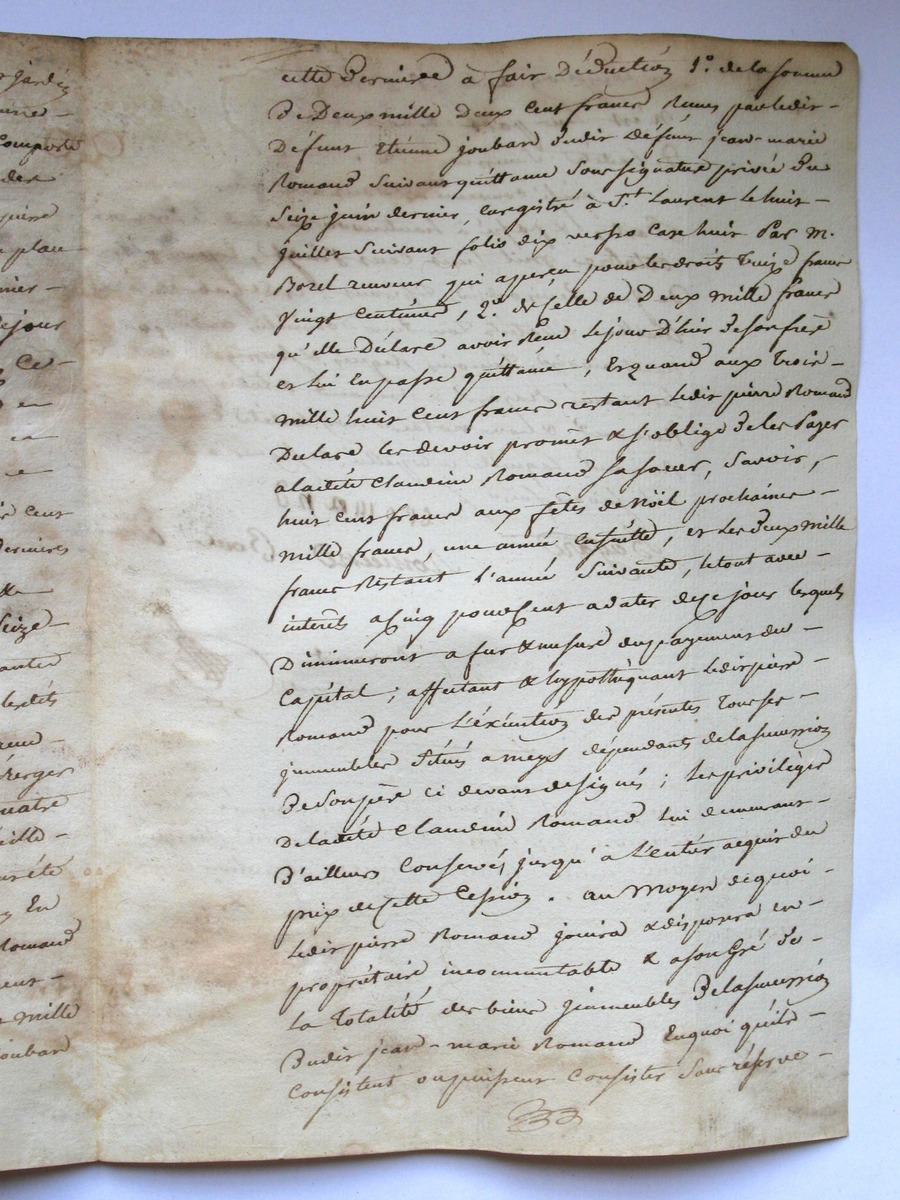 cette derniere à fair déduction 1.° de la somme
De Deux mille deux cent francs Reçus par ledit -
Défunt Etienne joubard dudit Défunt jean-marie
Romand Suivant quittance Sous signature privée du
Seize juin dernier, enregistré à S.t Laurent le huit -
juillet Suivant folio dix verso Case huit Par M.
Borel receveur qui a perçu pour les droits Treize francs
Vingt Centimes, 2.° de Celle de Deux mille francs
qu'elle Déclare avoir Reçu Le jour D'hui de son frère
et lui en passe quittance, Et quand aux trois -
mille huit Cent francs restant Ledit pierre Romand
Declare les devoir promet & s'oblige de les Payer
a ladite Claudine Romand Sa Soeur, Savoir, -
huit Cent francs aux fêtes de Noël prochaines -
mille francs, une année Ensuite, et Les deux mille
francs Restant L'année Suivante, le tout avec -
interêts a Cinq pour Cent a dater de Ce jour lesquels
Diminueront a fur & mesure du payement du -
Capital; affectant & hypothéquant Ledit pierre -
Romand pour L'éxécution des présentes Tous ses -
jmmeubles Situés a dépendants de la succession
De Son père Ci devant designés; Les priviléges
De ladite Claudine Romand Lui demeurant -
D'ailleurs Conservés jusqu'à L'entier acquit du
prix de Cette Cession. au Moyen de quoi -
Ledit pierre Romand jouira & disposera en -
propriétaire incommutable & a son Gré de -
La Totalité des biens jmmeubles De la succession
Dudit jean-marie Romand En quoi qu'ils -
Consistent ou puissent Consister Sans réserve -
jardin
Composté
place
jour
Ce -
en
cent
dernieres
Seize
Verger
quatre
En
Romand
mille
joubard